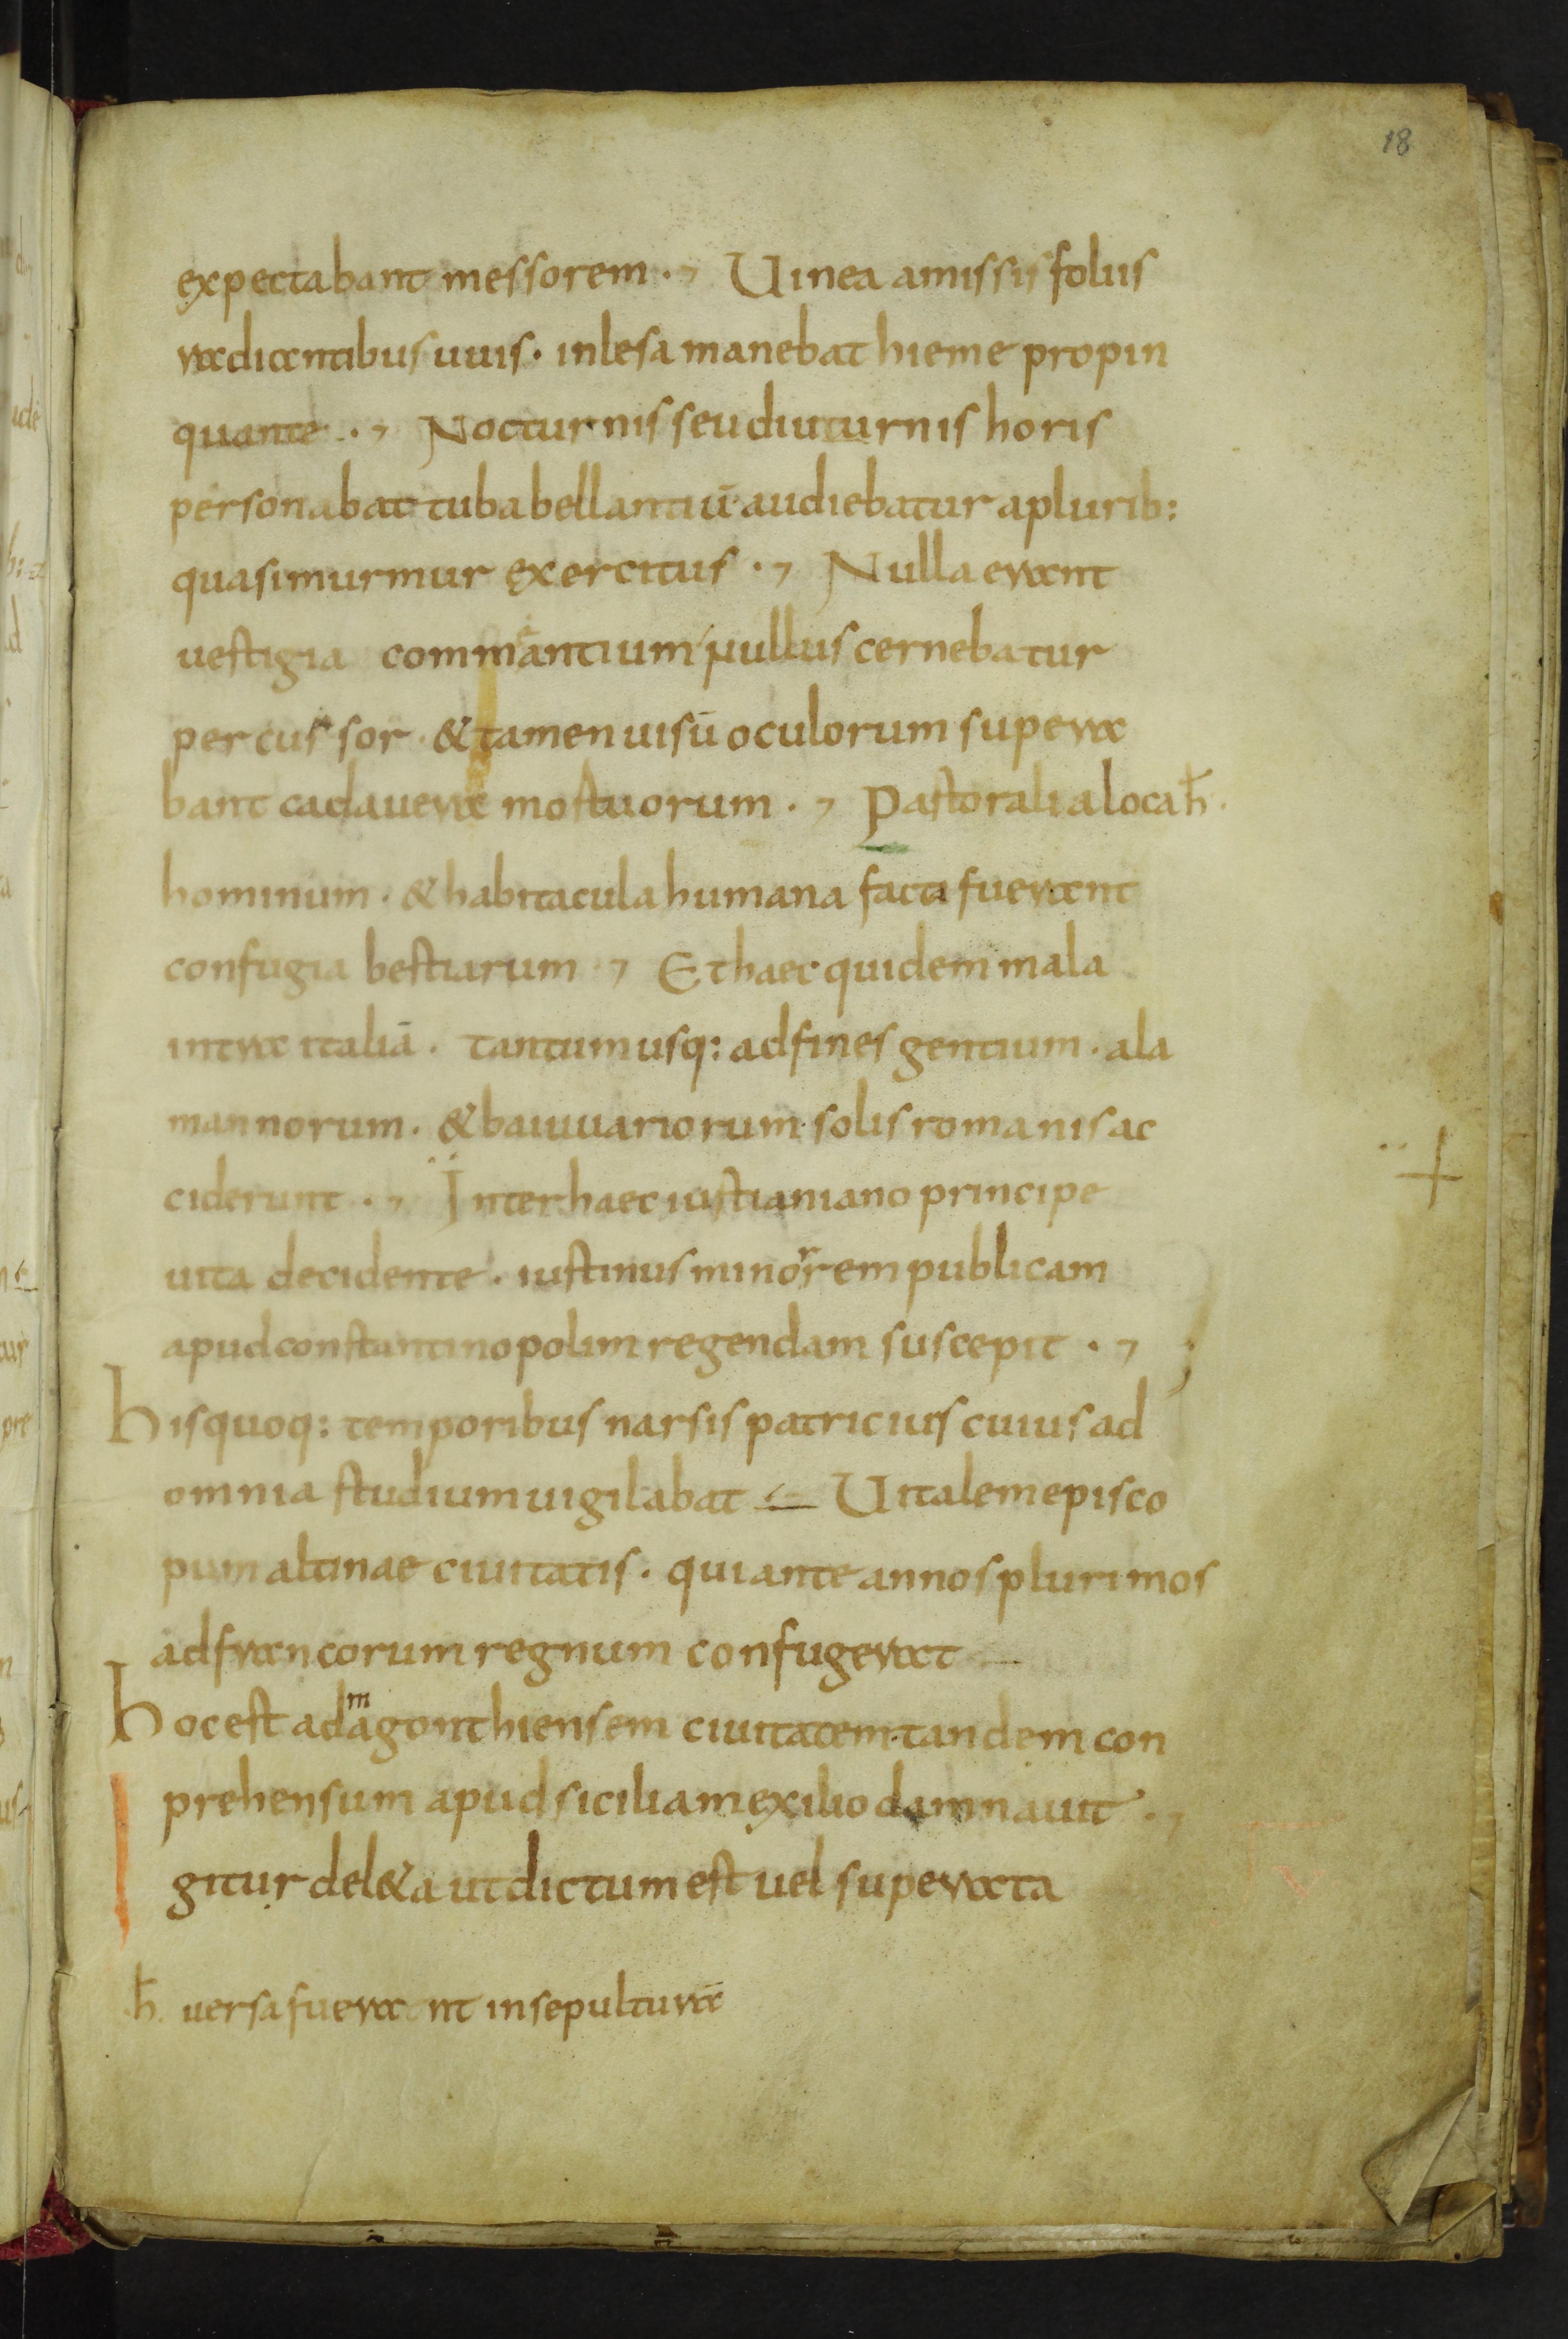 18
expectabant messorem · Uinea amissis foliis
radicantibus uuis · inlesa manebat hieme propin
quante · Nocturnis seu diuturnis horis
personabat tuba bellantiū audiebatur a plurib:
quasi murmur exercitus · Nulla erant
uestigia commeantium nullus cernebatur
percussor · & tamen uisū oculorum supera
bant cadauera mortuorum · Pastoralia loca h̄·
hominum · & habitacula humana facta fuerant
confugia bestiarum · Et haec quidem mala
intra italiā · tantum usq: ad fines gentium · ala
mannorum · & baiuuariorum solis romanis ac
ciderunt · Inter haec iustianiano principe
uita decidente · iustinus minor rem publicam
apud constantinopolim regendam suscepit ·
hisquoq: temporibus narsis patricius cuius ad
omnia studium uigilabat Uitalem episco
pum altinae ciuitatis · qui ante annos plurimos
ad francorum regnum confugerat
hoc est ad magonthiensem ciuitatem tandem con
prehensum apud siciliam exilio damnauit ·
Igitur del&a ut dictum est uel superata
h̄· uersa fuerant in sepultura